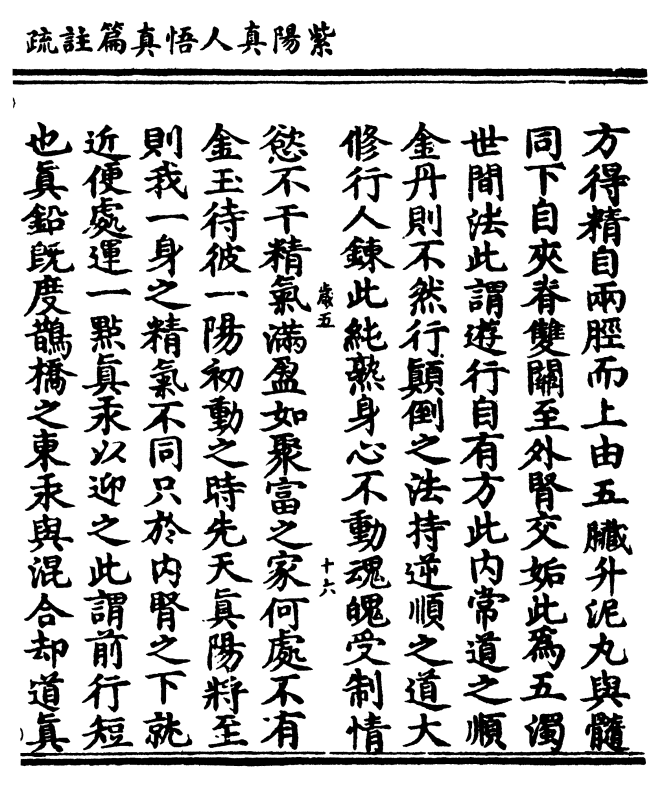 紫陽真人悟真篇註疏
方得精自兩脛而上由五臟升泥丸與髓
同下自夾脊雙關至外腎交姤此爲五濁
世間法此謂遊行自有方此內常道之順
金丹則不然行顛倒之法持逆順之道大
修行人鍊此純熟身心不動魂魄受制情
歲五
十六
慾不干精氣滿盈如聚富之家何處不有
金玉待彼一陽初動之時先天眞陽將至
則我一身之精氣不同只於內腎之下就
近便處運一點眞汞以迎之此謂前行短
也眞鉛既度鵲橋之東汞與混合却道眞